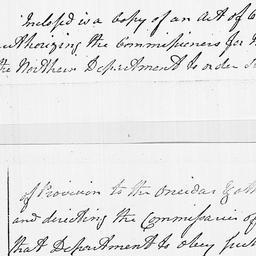 Inclosed is a Copy of an act of
authorizing the Commissioners for
the Northern Department to order
of Provision to the Oneidas &
and directing the Commissaries of
that Department to obey such